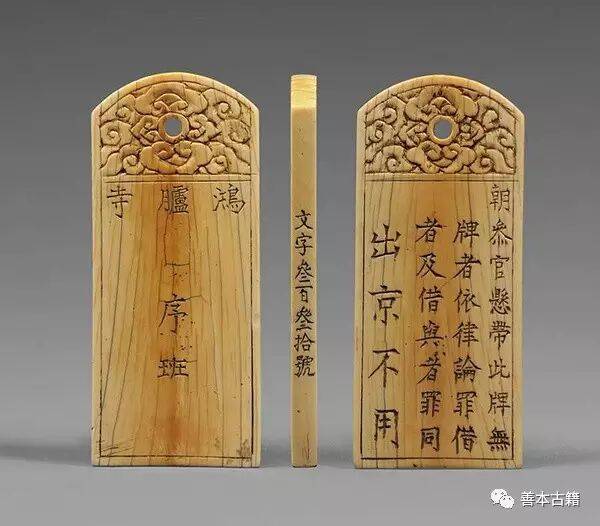 鴻臚寺
序班
文字叄百叄拾號
朝叅官懸帶此牌無
牌者依律論罪借
者及借與者罪同
出京不用
善本古籍